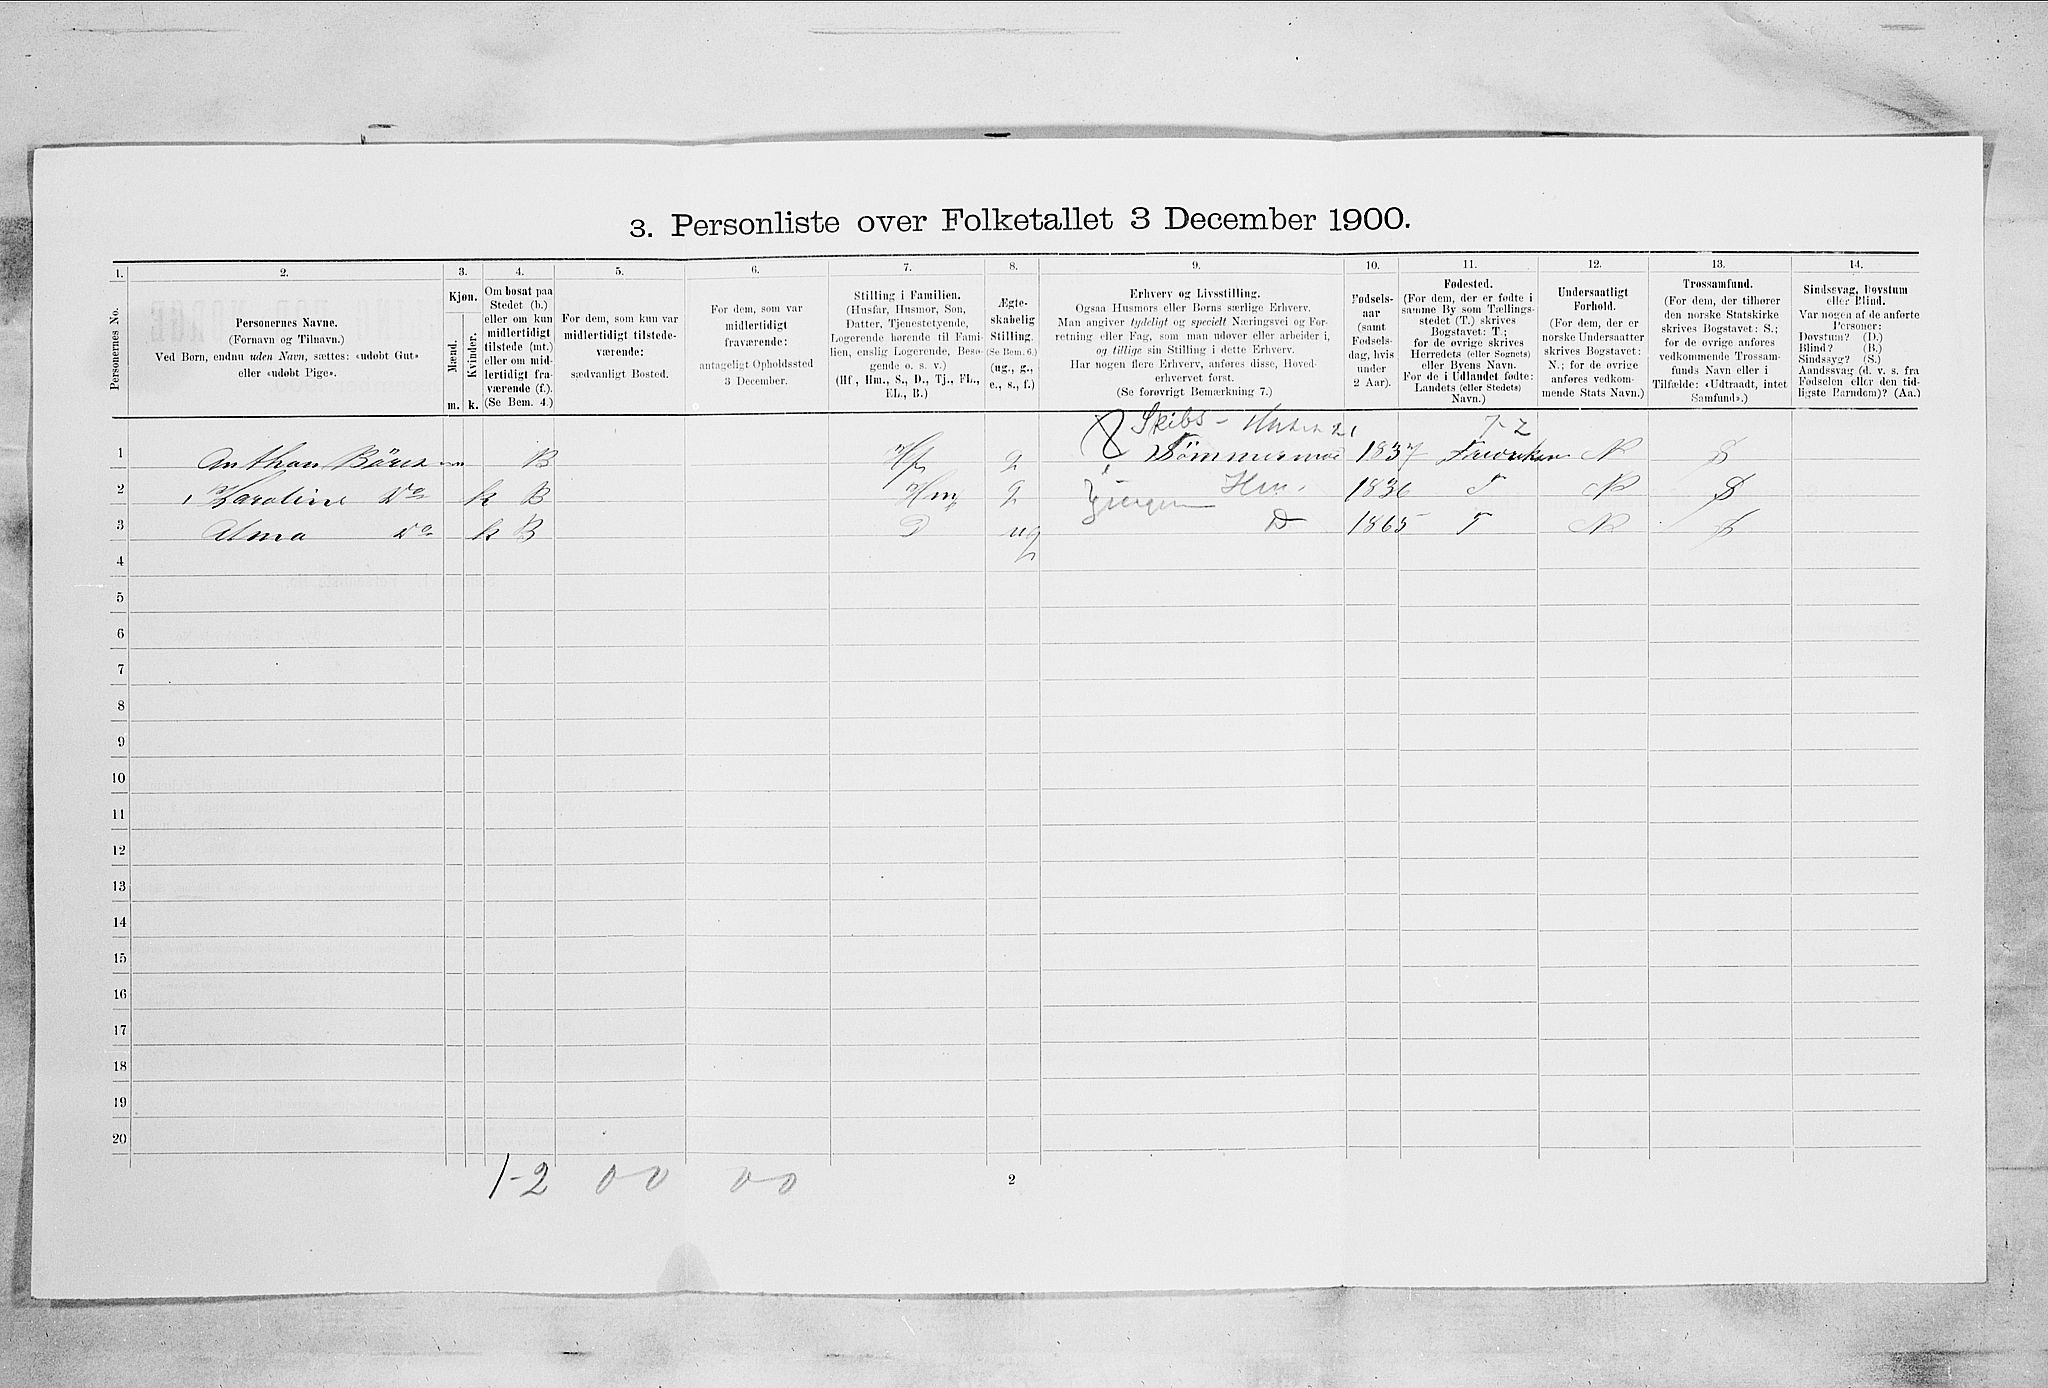 3. Personliste over Folketallet 3 December 1900.
1. 2. 3. 4. 5. 6. 7. 8. 9. 10. 11. 12. 13. 14.
Personernes No.
Personernes Navne.
(Fornavn og Tilnavn.)
Ved Børn, endnu uden Navn, sættes: «udøbt Gut»
eller «udøbt Pige».
Kjøn.
Mænd.
Kvinder.
m. k.
Om bosat paa
Stedet (b.)
eller om kun
midlertidigt
tilstede (mt.)
eller om mid-
lertidigt fra-
værende (f.).
(Se Bem. 4.)
For dem, som kun var
midlertidigt tilstede-
værende:
sædvanligt Bosted.
For dem, som var
midlertidigt
fraværende:
antageligt Opholdssted
3 December.
Stilling i Familien.
(Husfar, Husmor, Søn,
Datter, Tjenestetyende,
Logerende hørende til Fami-
lien, enslig Logerende, Besø-
gende o. s. v.)
(Hf., Hm., S., D., Tj., FL.,
EL., B.)
Ægte-
skabelig
Stilling.
(Se Bem. 6.)
(ug., g.,
e., s., f.)
Erhverv og Livsstilling.
Ogsaa Husmors eller Børns særlige Erhverv.
Man angiver tydeligt og specielt Næringsvei og For-
retning eller Fag, som man udøver eller arbeider i,
og tillige sin Stilling i dette Erhverv.
Har nogen flere Erhverv, anføres disse, Hoved-
erhvervet først.
(Se forøvrigt Bemærkning 7.)
Fødsels-
aar
(samt
Fødsels-
dag, hvis
under
2 Aar).
Fødested.
(For dem, der er fødte i
samme By som Tællings-
stedet (T.) skrives
Bogstavet: T.;
for de øvrige skrives
Herredets (eller Sognets)
eller Byens Navn.
For de i Udlandet fødte:
Landets (eller Stedets)
Navn.)
Undersaatligt
Forhold.
(For dem, der er
norske Undersaatter
skrives Bogstavet:
N.; for de øvrige
anføres vedkom-
mende Stats Navn.)
Trossamfund.
(For dem, der tilhører
den norske Statskirke
skrives Bogstavet: S.;
for de øvrige anføres
vedkommende Trossam-
funds Navn eller i
Tilfælde: «Udtraadt, intet
Samfund».)
Sindssvag, Døvstum
eller Blind.
Var nogen af de anførte
Personer:
Døvstum? (D.)
Blind? (B.)
Sindssyg? (S.)
Aandssvag (d. v. s. fra
Fødselen eller den tid-
ligste Barndom)? (Aa.)
Skibs-
1 Anthon B Hf g Tømmermand 1837 N S
2 Karoline Do k B Hm g Hm. 1836 T N S
3 Do k B D ug D 1865 T N S
4
5
6
7
8
9
10
11
12
13
14
15
16
17
18
19
20
1-2 0 0 0 0
2